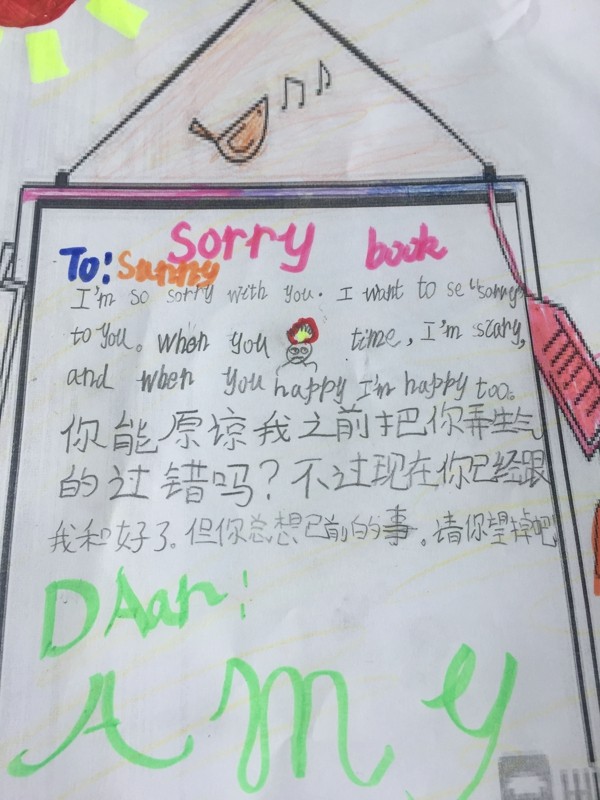 Sorry book
To: Sunny
I'm so sorry with you. I want to se "sorry"
to you. When you time, I'm scary,
and when you happy I'm happy too.
你能原谅我之前把你弄生气
的过错吗?不过现在你已经跟
我和好了。但你总想已前的事。请你望掉吧
DAan:
AMY